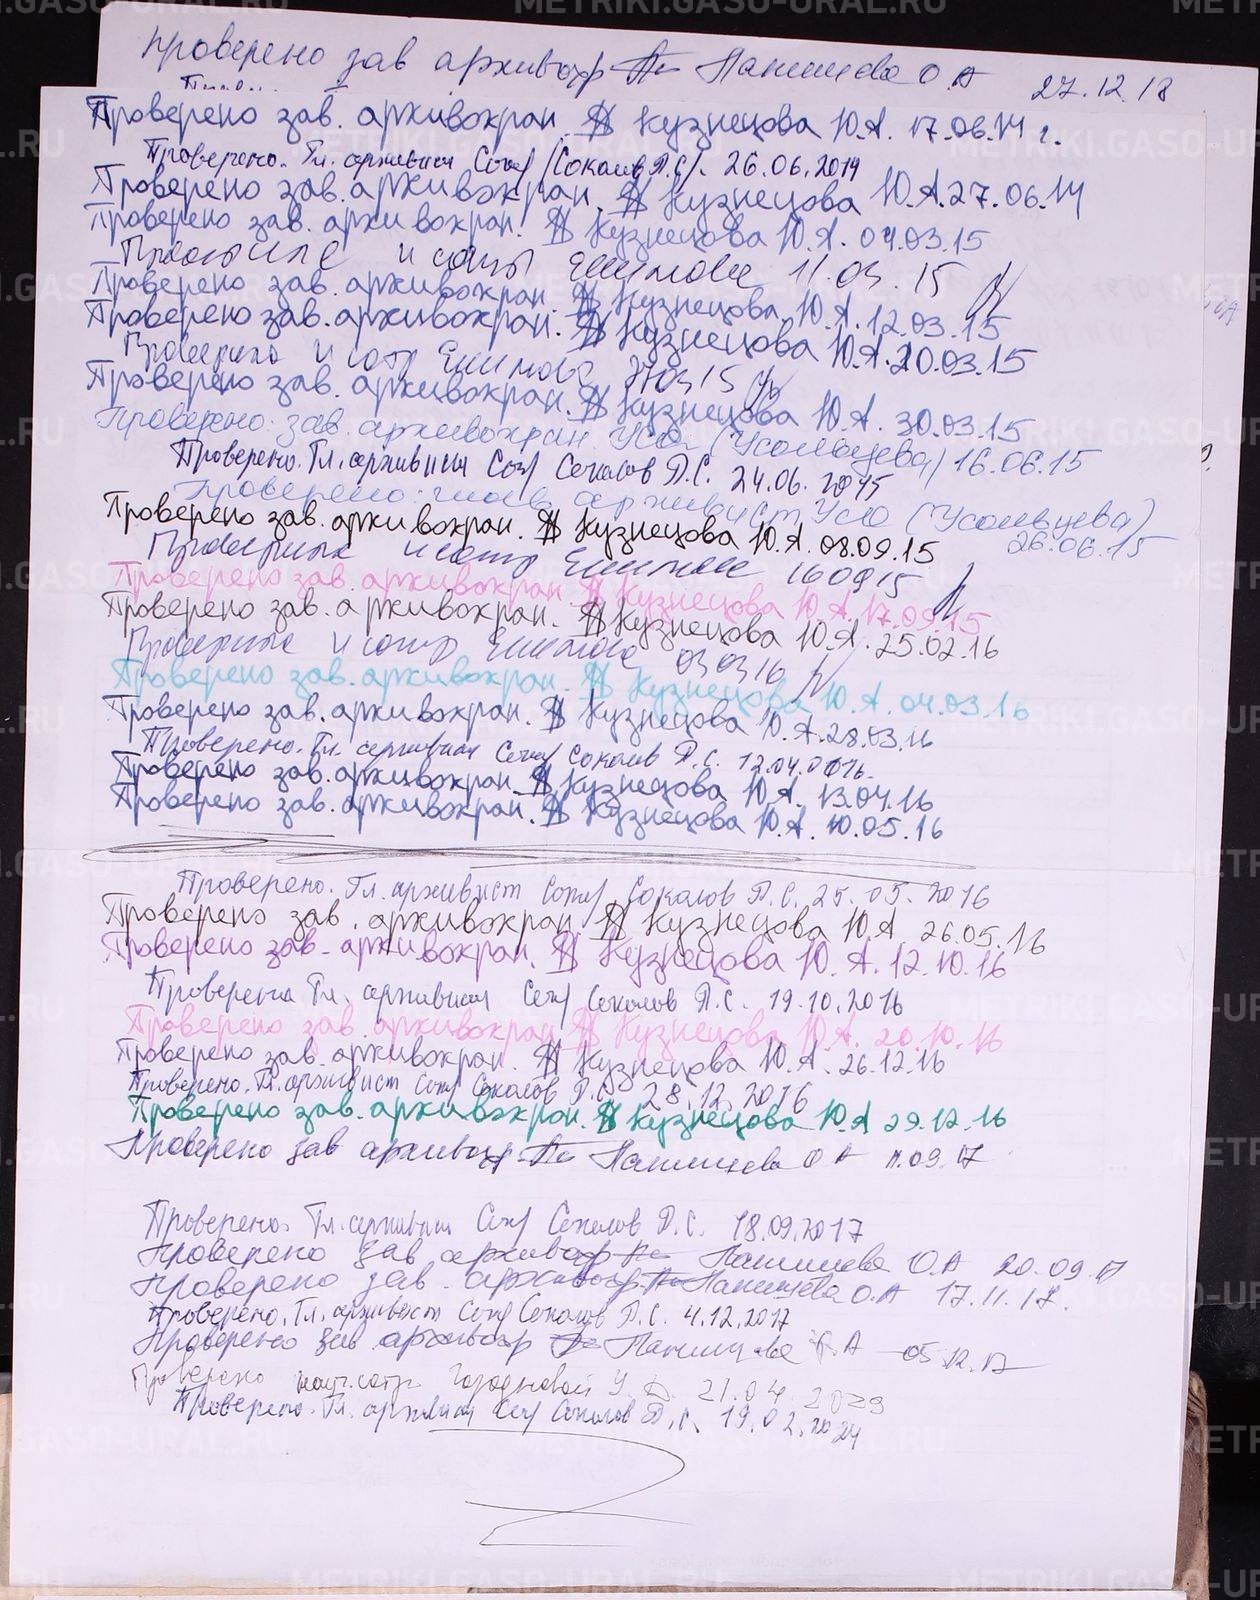 METRIKI.GASO-URAL.RU
Проверено зав архивохр Панишева О.А 27.12.18
Проверено зав. архивохран. Кузнецова Ю.А. 17.06.14 г.
Проверено. Гл. архивист Соколов Д.С. 26.06.2014
Проверено зав. архивохран. Кузнецова Ю.А. 27.06.14
Проверено зав. архивохран. Кузнецова Ю.А. 04.03.15
и сотр 11.03.15
Проверено зав. архивохран. Кузнецова Ю.А. 12.03.15
Проверено зав. архивохран. Кузнецова Ю.А. 20.03.15
Проверила и сотр 270315
Проверено зав. архивохран. Кузнецова Ю.А. 30.03.15
Проверено: зав. архивохран Усо (Усольцева) 16.06.15
Проверено. Гл. архивист Соколов Д.С. 24.06.2015
Проверено: глав. архивист Усо (Усольцева)
26.06.15
Проверено зав. архивохран. Кузнецова Ю.А. 08.09.15
и сотр 160915
Проверено зав. архивохран. Кузнецова Ю.А. 17.09.15
Проверено зав. архивохран. Кузнецова Ю.А. 25.02.16
и сотр 030316
Проверено зав. архивохран. Кузнецова Ю.А. 04.03.16
Проверено зав. архивохран. Кузнецова Ю.А. 28.03.16
Проверено. Гл. архивист Соколов Д.С. 12.04.2016.
Проверено зав. архивохран. Кузнецова Ю.А. 13.04.16
Проверено зав. архивохран. Кузнецова Ю.А. 10.05.16
Проверено. Гл. архивист Соколов Д.С. 25.05.2016
Проверено зав. архивохран. Кузнецова Ю.А 26.05.16
Проверено зав. архивохран. Кузнецова Ю.А. 12.10.16
Проверено Гл. архивист Соколов Д.С. 19.10.2016
Проверено зав. архивохран. Кузнецова Ю.А. 20.10.16
Проверено зав. архивохран. Кузнецова Ю.А. 26.12.16
Проверено. Гл. архивист Соколов Д.С. 28.12.2016
Проверено зав. архивохран. Кузнецова Ю.А 29.12.16
Проверено зав архивохр Панишева О А 11.09.17
Проверено. Гл. архивист Соколов Д.С. 18.09.2017
Проверено зав архивохр Панишева О.А 20.09.17
Проверено зав. архивохр. Панишева О.А 17.11.17.
Проверено. Гл. архивист Соколов Д.С. 4.12.2017
Проверено зав архивохр Панишева О.А 05.12.17
Проверено науч.сотр. 21.04.2023
Проверено. Гл. архивист Соколов Д.С. 19.02.2024